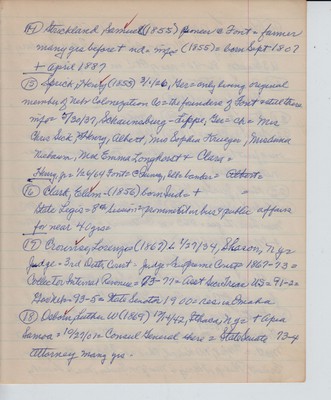 14) Strickland, Samuel (1855) Pioneer @ Font = farmer
many yrs before + nd = mfgr (1855) = born Sept 1807
+ April 1887
15) Sprick, Henry (1853) 3/1/26, Ger = only living original
member of Nebr Colonization Co = the founders of Font = still there
Schaumsburg = Lippe, Ger = ch = Mrs
Albert, Mrs Sophia Krueger, Mrs Anna
Mrs Emma Longhorst & Clara =
Henry, Jr = 1/26/64 Font = C banker =
16) Clark, Elam = (1856) born Ind = +
State Legis = 8th session = prominent in bus & public affairs
for near 40 yrs =
17) Crounse, Lorenzo (1867) b 1/27/34, Sharon, N.Y. =
Judge = 3rd Distr. Court = Judge Supreme Court = 1867-73 =
Collector Internal Revenue = 79-79 = Asst Secr Treas US = 91-2 =
Gov Nebr = 93-5 = State Senate 1900 = res in Omaha
18) Osborn, Luther W (1869) Ithaca, N.Y. = + Apia
Samoa = 10/29/01 = Consul General there = State Senate 73-4
Attorney many yrs -